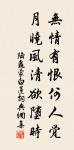 無情有恨何人覺
月曉風清欲墮時
陸龜蒙白蓮詩與儞集